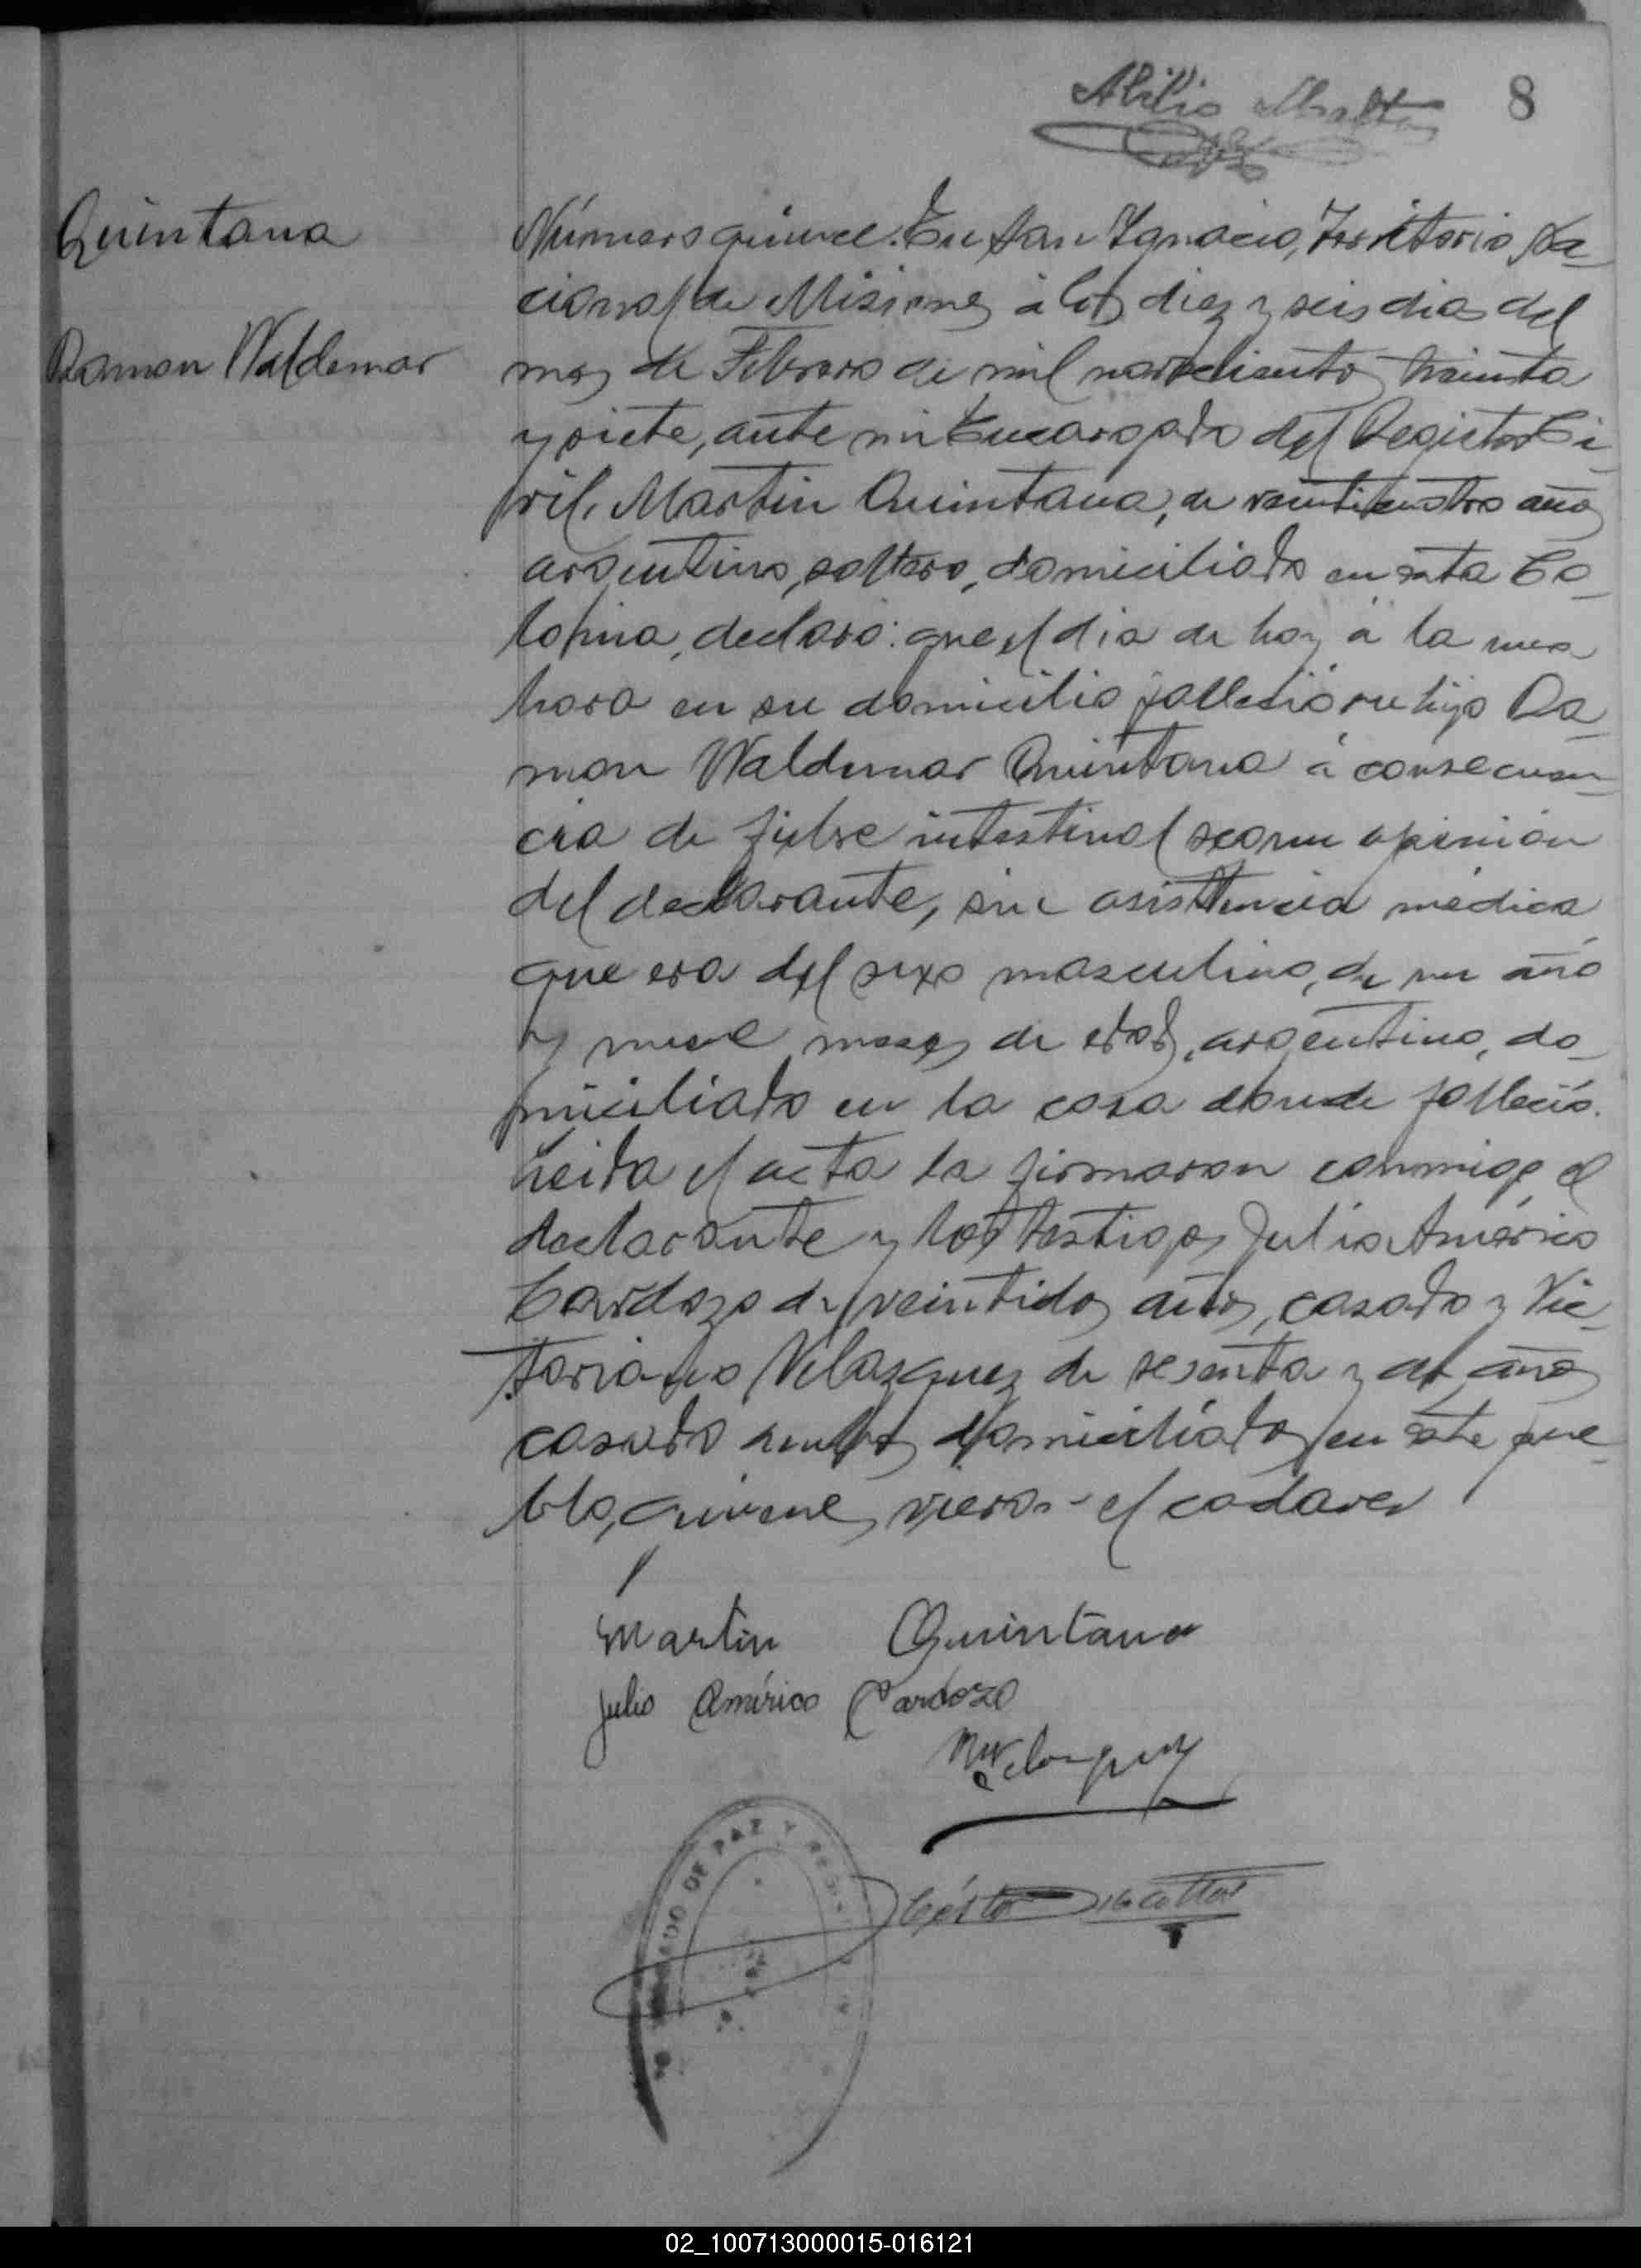 Abilio
8
Quintana
Ramon Waldemar
Número quince. En San Ignacio, Territorio Na-
cional de Misiones á los diez y seis dias del
mes de Febrero de mil novecientos treinta
y siete, ante mi Encargado del Registro Ci-
vil, Martin Quintana, de veinticuatro años
argentino, soltero, domiciliado en esta Co-
lonia, declaró: que el dia de hoy á la una
hora en su domicilio falleció su hijo Ra-
mon Waldemar Quintana á consecuen-
cia de fiebre intestinal segun opinión
del declarante, sin asistencia médica
que era del sexo masculino, de un año
y nueve meses de edad, argentino, do-
miciliado en la casa donde falleció.
Leida el acta la firmaron conmigo el
declarante y los testigos Julio Américo
Cardozo de veintidos años, casado y Vic-
toriano Velazquez de sesenta y años
casado ambos domiciliados en este pue-
blo, quienes vieron el cadaver
Martin Quintana
Julio Américo Cardozo
Velazquez
JUZGADO DE PAZ Y
02_100713000015-016121